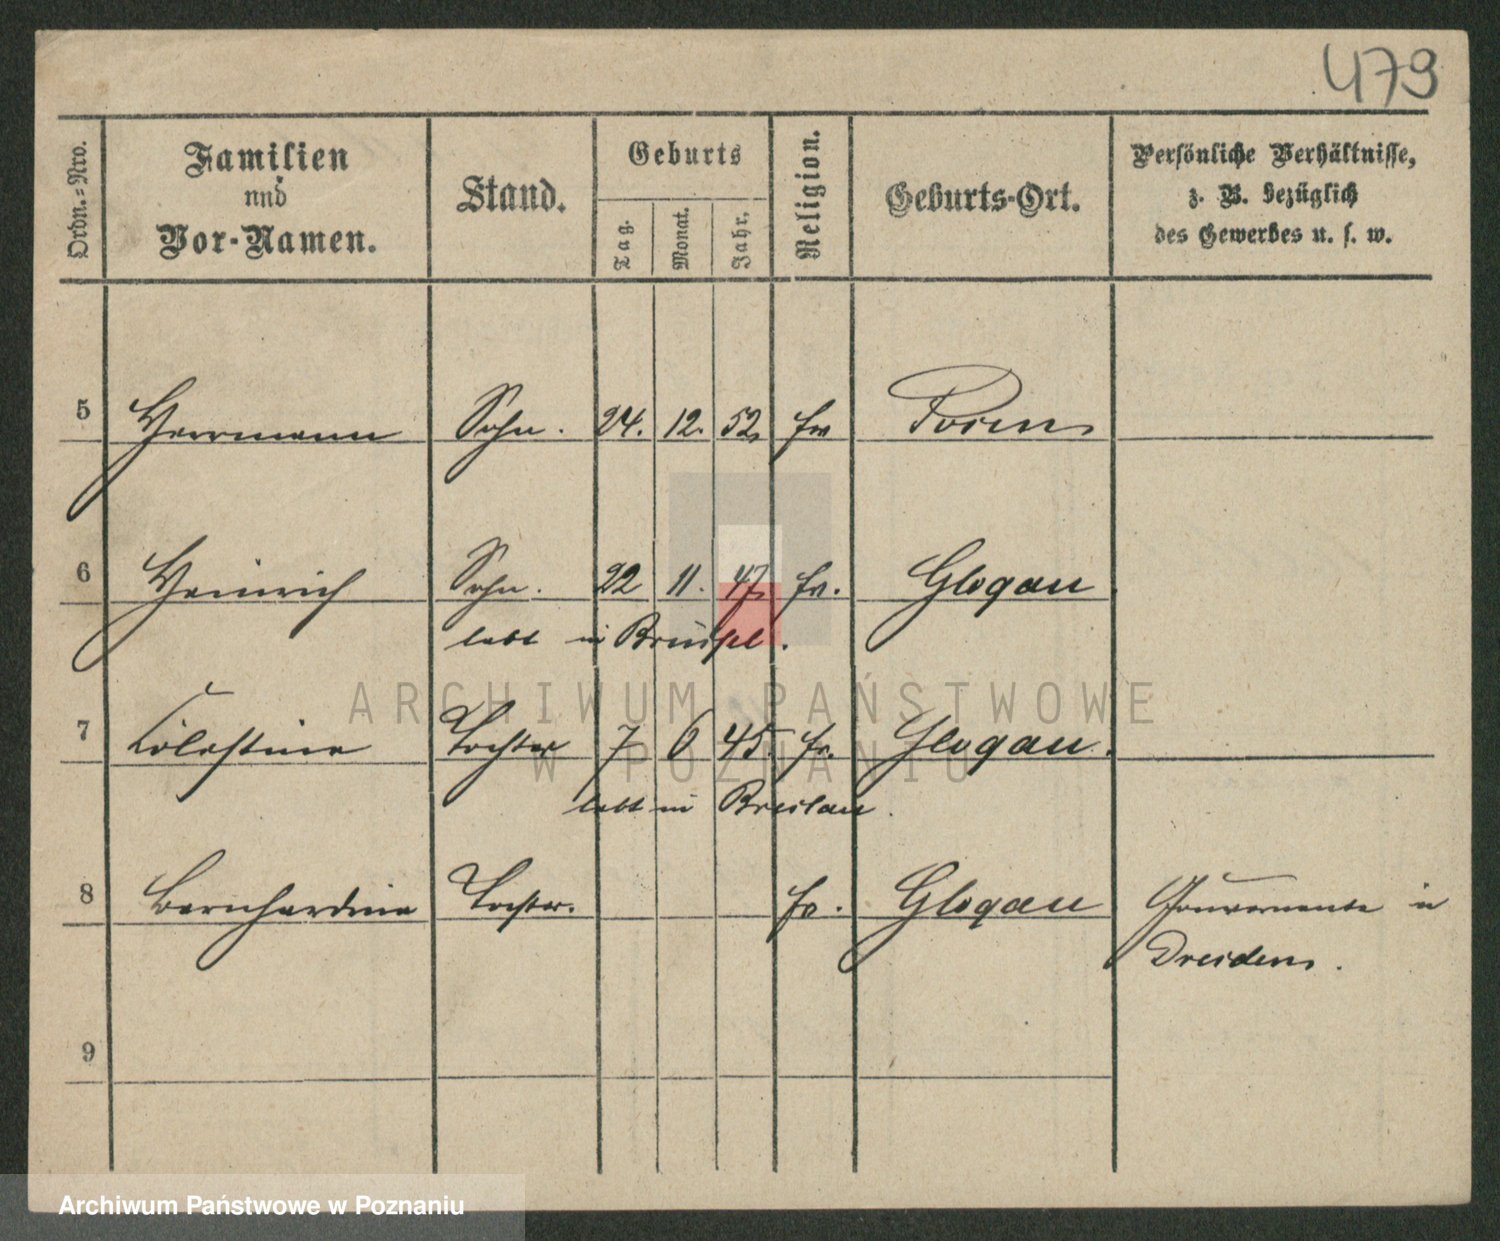 479
Ordn.-Nro.
Familien
und
Vor-Namen.
Stand.
Geburts
Tag.
Monat.
Jahr.
Religion.
Geburts-Ort.
Persönliche Verhältnisse,
z. B. bezüglich
des Gewerbes u. s. w.
5 Herrmann Sohn. 24. 12. 52.
6 Heinrich Sohn. 22 11. 47. Glogau
lebt in Brüssel.
7 Cölestine Tochter 7 6 45. Glogau.
lebt in Breslau.
8 Bernhardine Tochter. Glogau Gouvernante in
Dresden.
9
ARCHIWUM PAŃSTWOWE
W POZNANIU
Archiwum Państwowe w Poznaniu